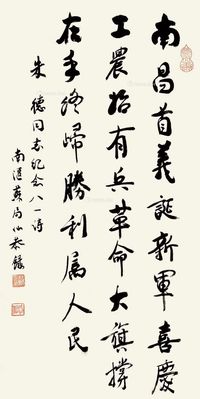 南昌首義誕新軍喜慶
工農始有兵革命大旗撐
在手終歸勝利屬人民
朱德同志紀念八一詩
南匯蘇局仙恭錄